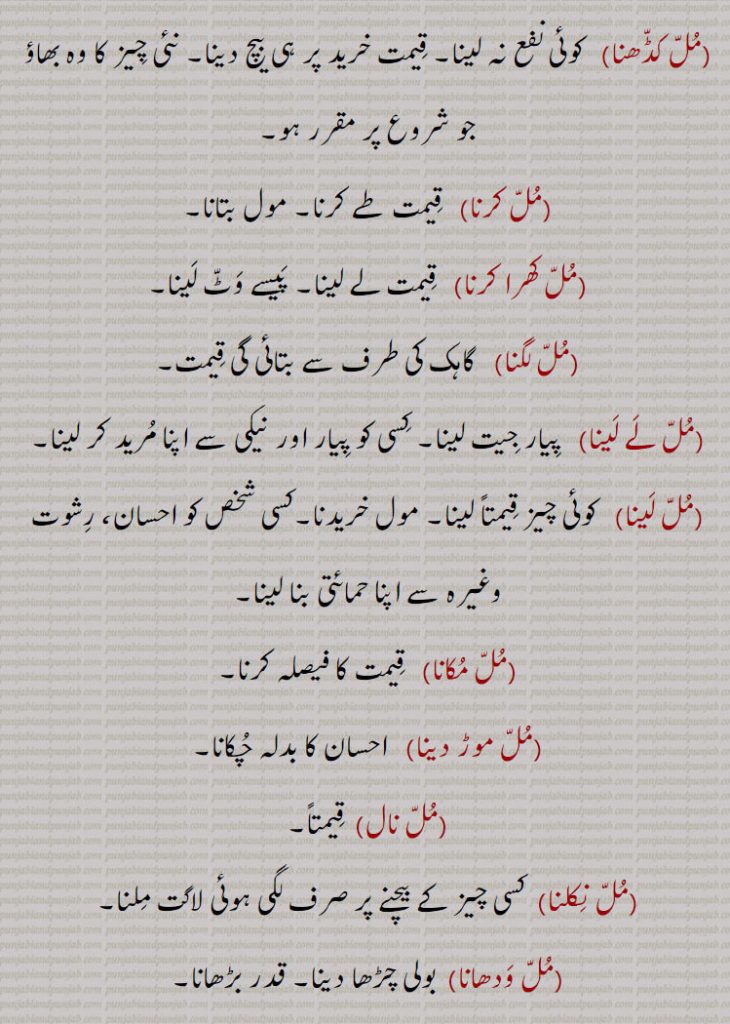 (مُلّ کڈّھنا) کوئی نفع نہ لینا۔ قِیمت خرید پر ہی بیچ دینا۔ نئی چِیز کا وہ بھاؤ
جو شروع پر مقرر ہو۔
(مُلّ کرنا) قِیمت طے کرنا۔ مول بتانا۔
(مُلّ کھرا کرنا) قِیمت لے لینا۔ پَیسے وَٹّ لَینا۔
(مُلّ لگنا) گاہک کی طرف سے بتائی گی قِیمت۔
(مُلّ لَے لَینا) پِیار جِیت لینا۔ کِسی کو پِیار اور نیکی سے اپنا مُرید کر لینا۔
(مُلّ لَینا) کوئی چیز قِیمتاً لینا۔ مول خریدنا۔ کسی شخص کو احسان، رِشوت
وغیرہ سے اپنا حمائتی بنا لینا۔
(مُلّ مُکانا) قِیمت کا فیصلہ کرنا۔
(مُلّ موڑ دینا) احسان کا بدلہ چُکانا۔
(مُلّ نال) قِیمتاً۔
(مُلّ نِکلنا) کسی چیز کے بیچنے پر صرف لگی ہوئی لاگت مِلنا۔
(مُلّ وَدھانا) بولی چڑھا دینا۔ قدر بڑھانا۔